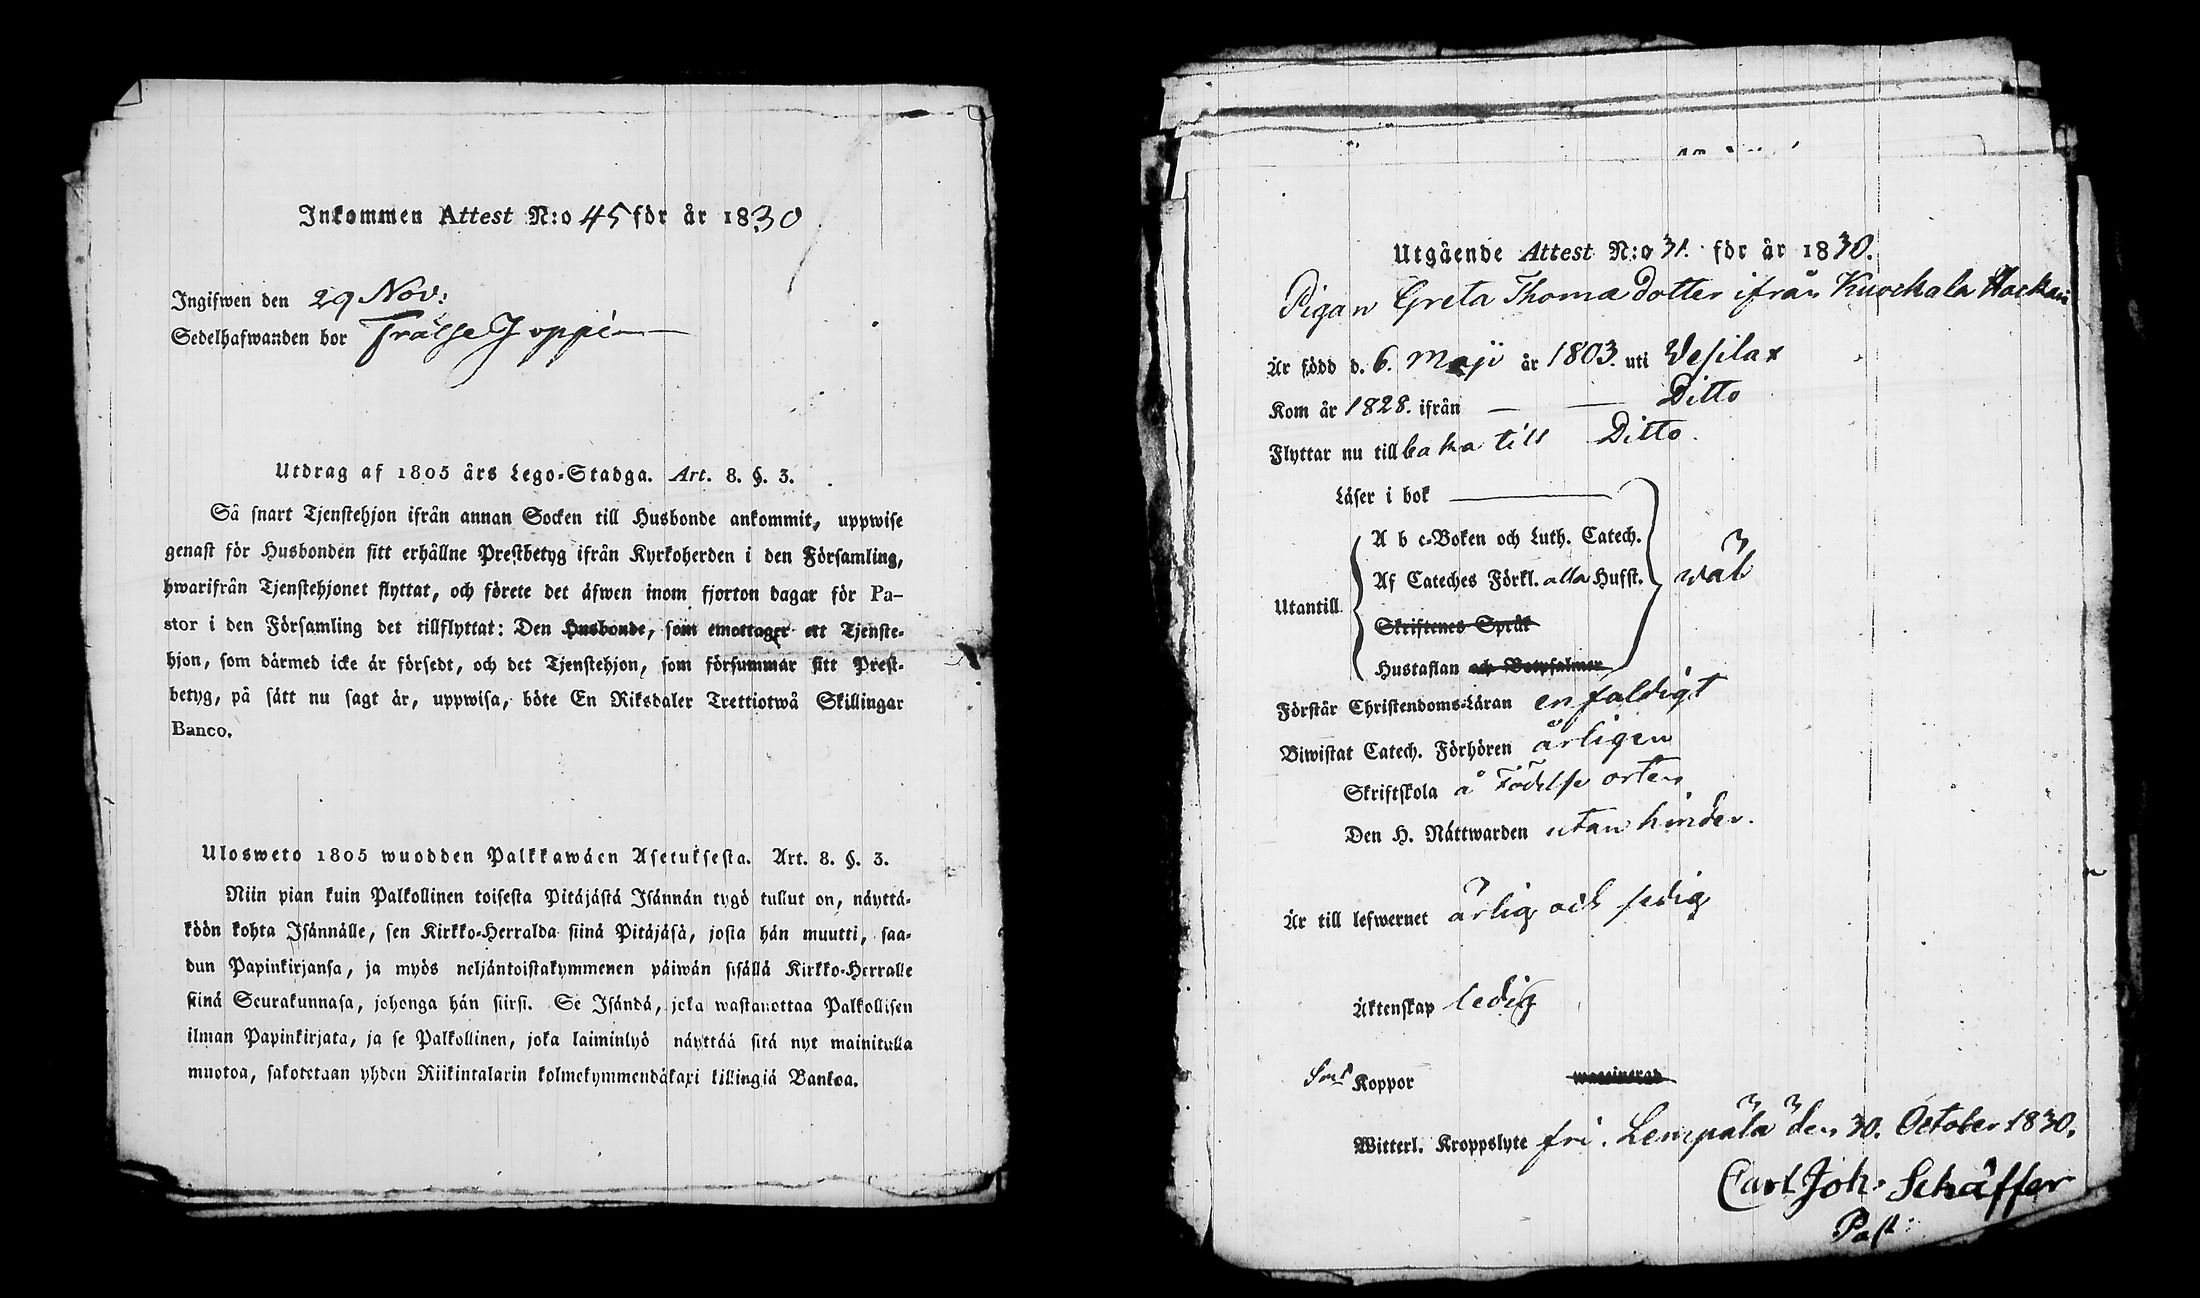 Inkommen Attest N:o 45 för år 1830
Ingifwen den 29 Nov:
Sedelhafwanden bor Frälse Joppi
Utdrag af 1805 års Lego-Stadga. Art. 8. §. 3.
Så snart Tjenstehjon ifrån annan Socken till Husbonde ankommit, uppwise
genast för Husbonden sitt erhållne Prestbetyg ifrån Kyrkoherden i den Församling,
hwarifrån Tjenstehjonet flyttat, och förete det äfwen inom fjorton dagar för Pa-
stor i den Församling det tillflyttat: Den Husbonde, som emottager ett Tjenste-
hjon, som därmed icke är försedt, och det Tjenstehjon, som försummar sitt Prest-
betyg, på sätt nu sagt är, uppwisa, böte En Riksdaler Trettiotwå Skillingar
Banco.
Ulosweto 1805 wuodden Palkkawäen Asetuksesta. Art. 8. §. 3.
Niin pian kuin Palkollinen toisesta Pitäjästä Isännän tygö tullut on, näyttä-
köön kohta Isännälle, sen Kirkko-Herralda siinä Pitäjäsä, josta hän muutti, saa-
dun Papinkirjansa, ja myös neljäntoistakymmenen päiwän sisällä Kirkko-Herralle
siinä Seurakunnasa, johonga hän siirsi. Se Isändä, joka wastanottaa Palkollisen
ilman Papinkirjata, ja se Palkollinen, joka laiminlyö näyttää sitä nyt mainitulla
muotoa, sakotetaan yhden Riikintalarin kolmekymmendäkaxi killingiä Bankoa.
Utgående Attest N:o 31. för år 1830.
Pigan Greta Thomædotter ifrån Kuockala Hackari
Är född d. 6. Maji år 1803. uti Vesilax
Kom år 1828. ifrån — — Ditto
Flyttar nu tillbaka till Ditto.
Läser i bok
A b c-Boken och Luth. Catech.
Af Cateches Förkl. alla Hufst. wäl
Utantill
Skriftenes Språk
Hustaflan och Botpsalmer
Förstår Christendoms-Läran enfaldigt
Biwistat Catech. Förhören årligen
Skriftskola å Födelse orten
Den H. Nattwarden utan hinder.
Är till lefwernet ärlig och sedig
Äktenskap ledig
Koppor waccinerad
Witterl. Kroppslyte fri. Lempälä den 30. October 1830.
Carl Joh. Schäffer
Past: